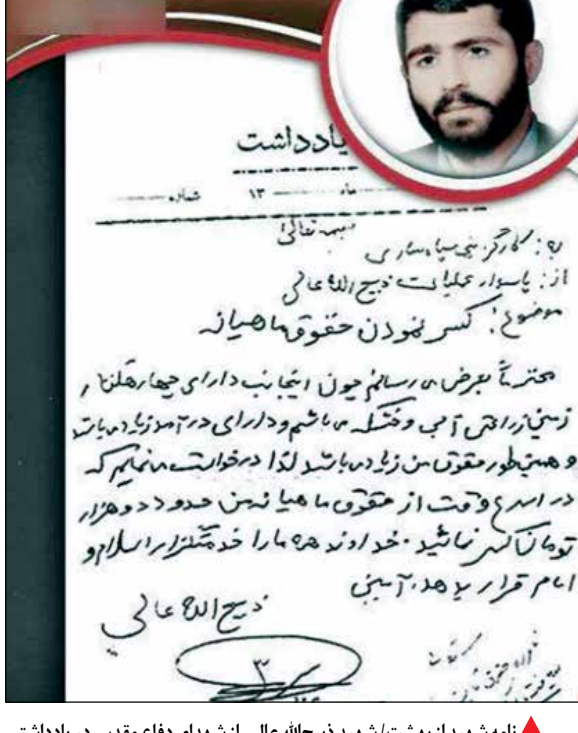 یادداشت
شماره ماه ۱۳
بسمه تعالی
به: کارگزینی سپاه ساری
از: پاسدار عملیات ذبیح الله عالی
موضوع: کسر نمودن حقوق ماهیانه
محترماً بعرض می رسانم چون اینجانب دارای چهار هکتار
زمین زراعتی آبی و خشکه می باشم و دارای درآمد زیاد می باشد
و همینطور حقوق من زیاد می باشد لذا درخواست می نمایم که
در اسرع وقت از حقوق ماهیانه من حدود دو هزار
تومان کسر نمائید. خداوند همه ما را خدمتگزار اسلام و
امام قرار بدهد. آمین
ذبیح الله عالی
نامه شهید از بهشت/ شهید ذبیح‌الله عالی از شهدای دفاع مقدس در یادداشتی